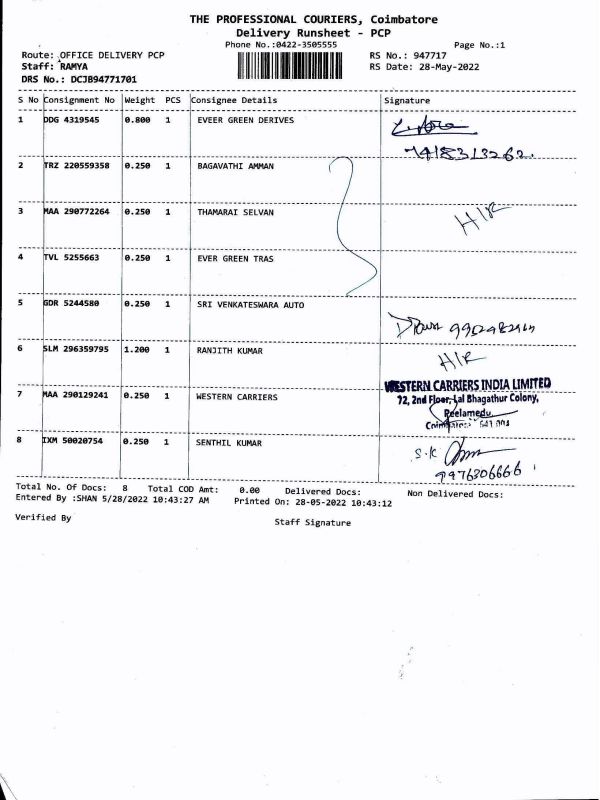 THE PROFESSIONAL COURIERS, Coimbatore
Delivery Runsheet - PCP
Phone No.:0422-3505555 Page No.:1
Route: OFFICE DELIVERY PCP RS No.: 947717
Staff: RAMYA RS Date: 28-May-2022
DRS No.: DCJB94771701
S No Consignment No Weight PCS Consignee Details Signature
1 DDG 4319545 0.800 1 EVEER GREEN DERIVES
7418313262.
2 TRZ 220559358 0.250 1 BAGAVATHI AMMAN
3 MAA 290772264 0.250 1 THAMARAI SELVAN H/R
4 TVL 5255663 0.250 1 EVER GREEN TRAS
5 GDR 5244580 0.250 1 SRI VENKATESWARA AUTO
6 SLM 296359795 1.200 1 RANJITH KUMAR H/R
WESTERN CARRIERS INDIA LIMITED
7 MAA 290129241 0.250 1 WESTERN CARRIERS 72, 2nd Floor, Lal Bhagathur Colony,
Peelamedu,
8 IXM 50020754 0.250 1 SENTHIL KUMAR S.K
9976306666
Total No. Of Docs: 8 Total COD Amt: 0.00 Delivered Docs: Non Delivered Docs:
Entered By :SHAN 5/28/2022 10:43:27 AM Printed On: 28-05-2022 10:43:12
Verified By Staff Signature